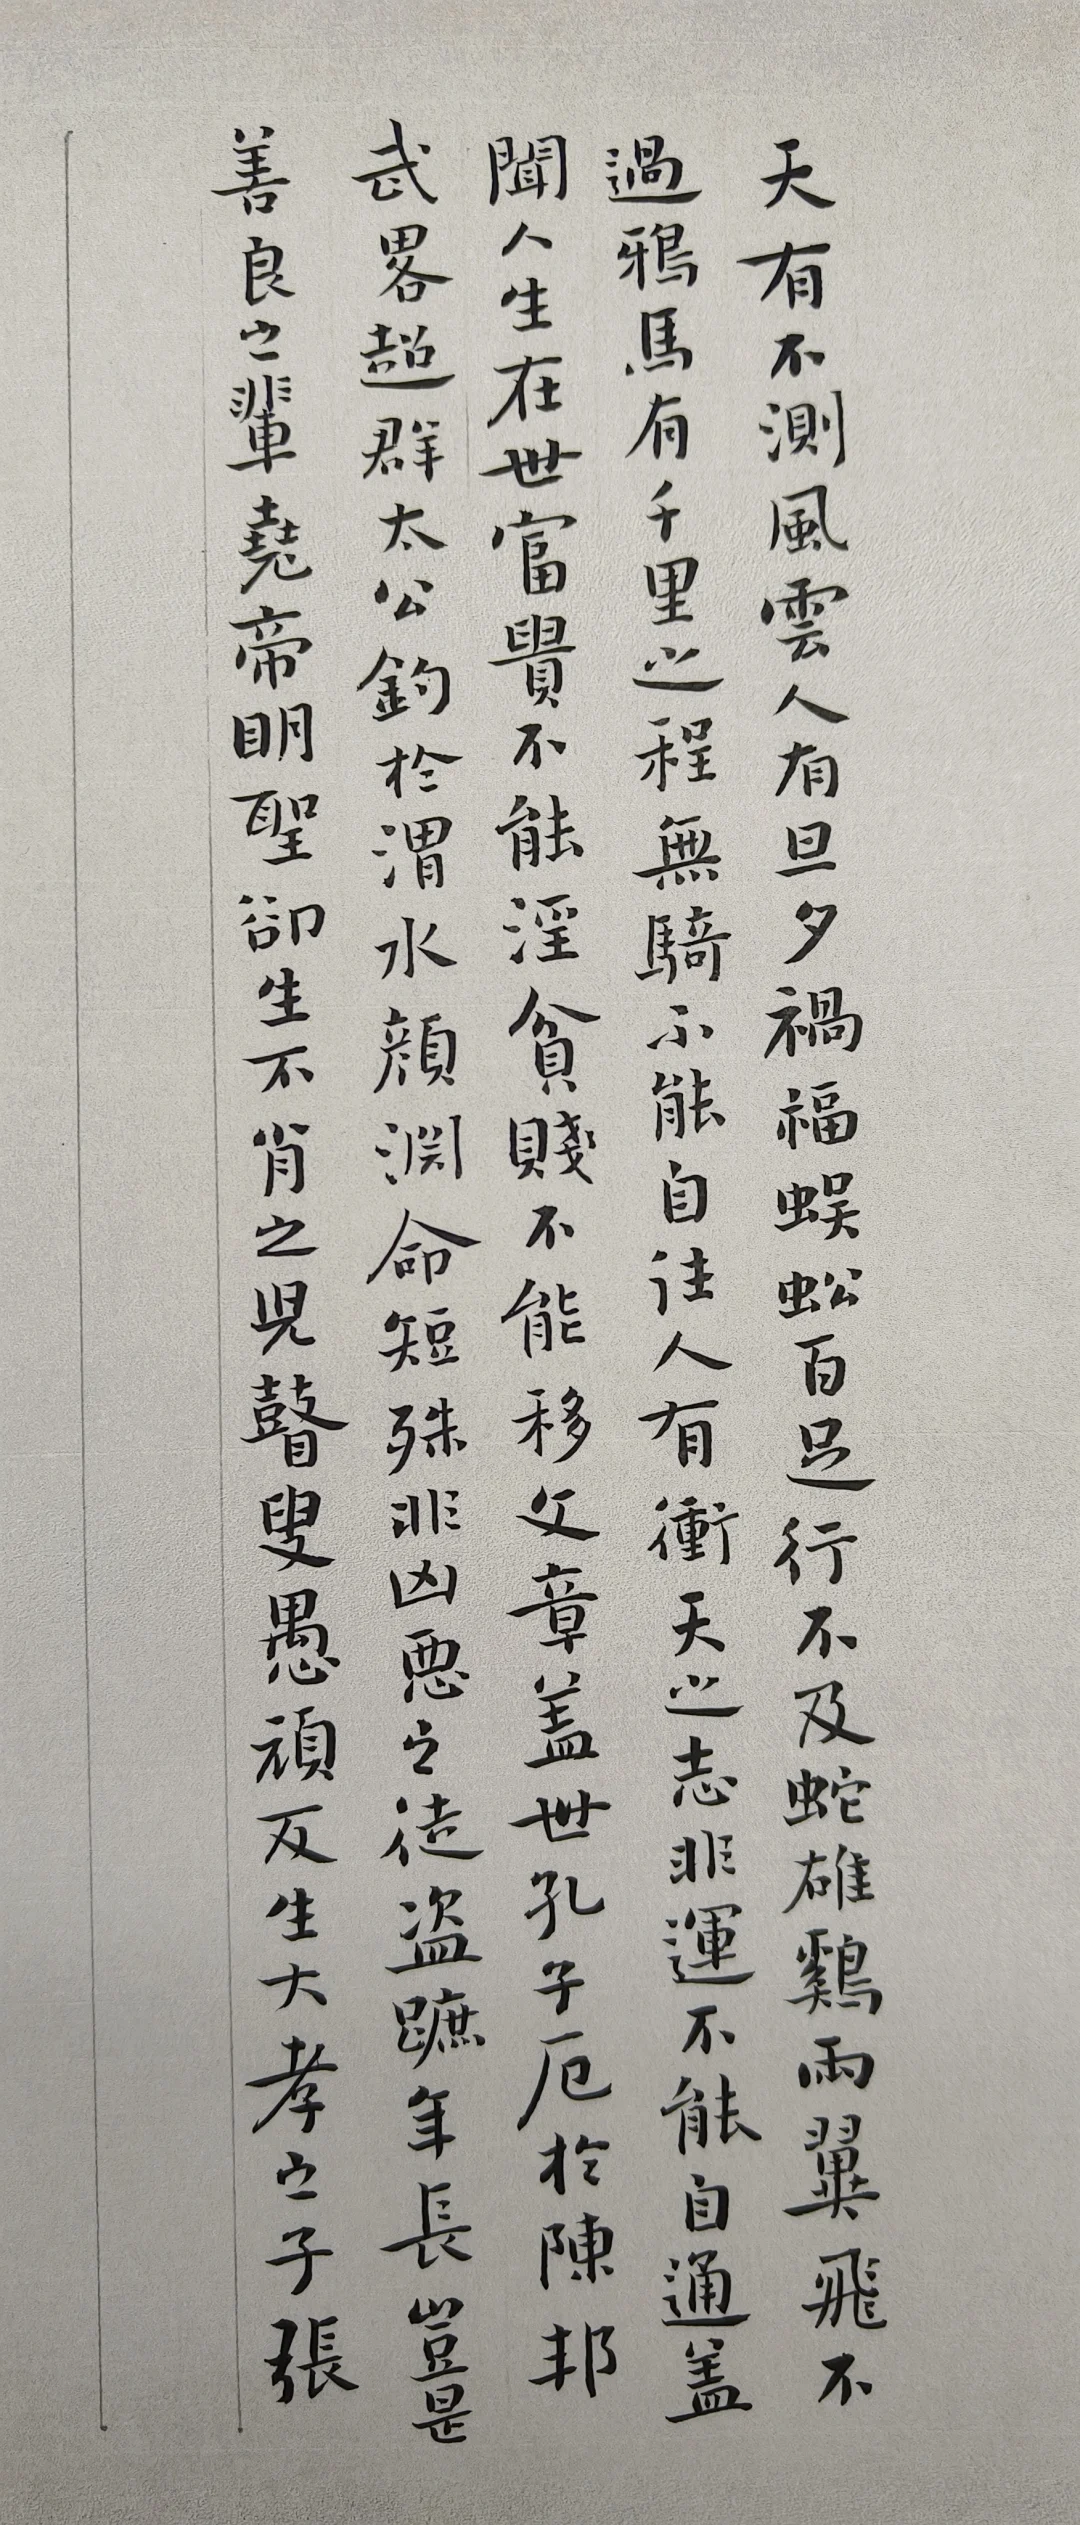 天有不測風雲人有旦夕禍福蜈蚣百足行不及蛇雄鷄兩翼飛不
過鴉馬有千里之程無騎不能自往人有衝天之志非運不能自通盖
聞人生在世富貴不能淫貧賤不能移文章盖世孔子厄於陳邦
武畧超群太公釣於渭水顔淵命短殊非凶惡之徒盗蹠年長豈是
善良之輩堯帝明聖卻生不肖之児瞽叟愚頑反生大孝之子張